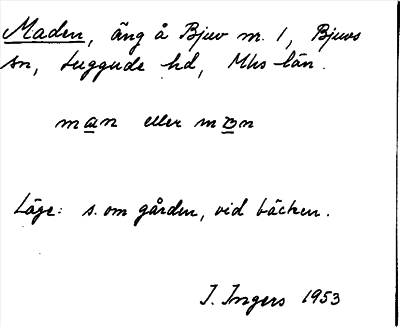 Maden, äng å Bjuv m. 1, Bjuvs
sn, Luggude hd, Mhs län.
man eller mɒn
Läge: s. om gården, vid bäcken.
I. Ingers 1953